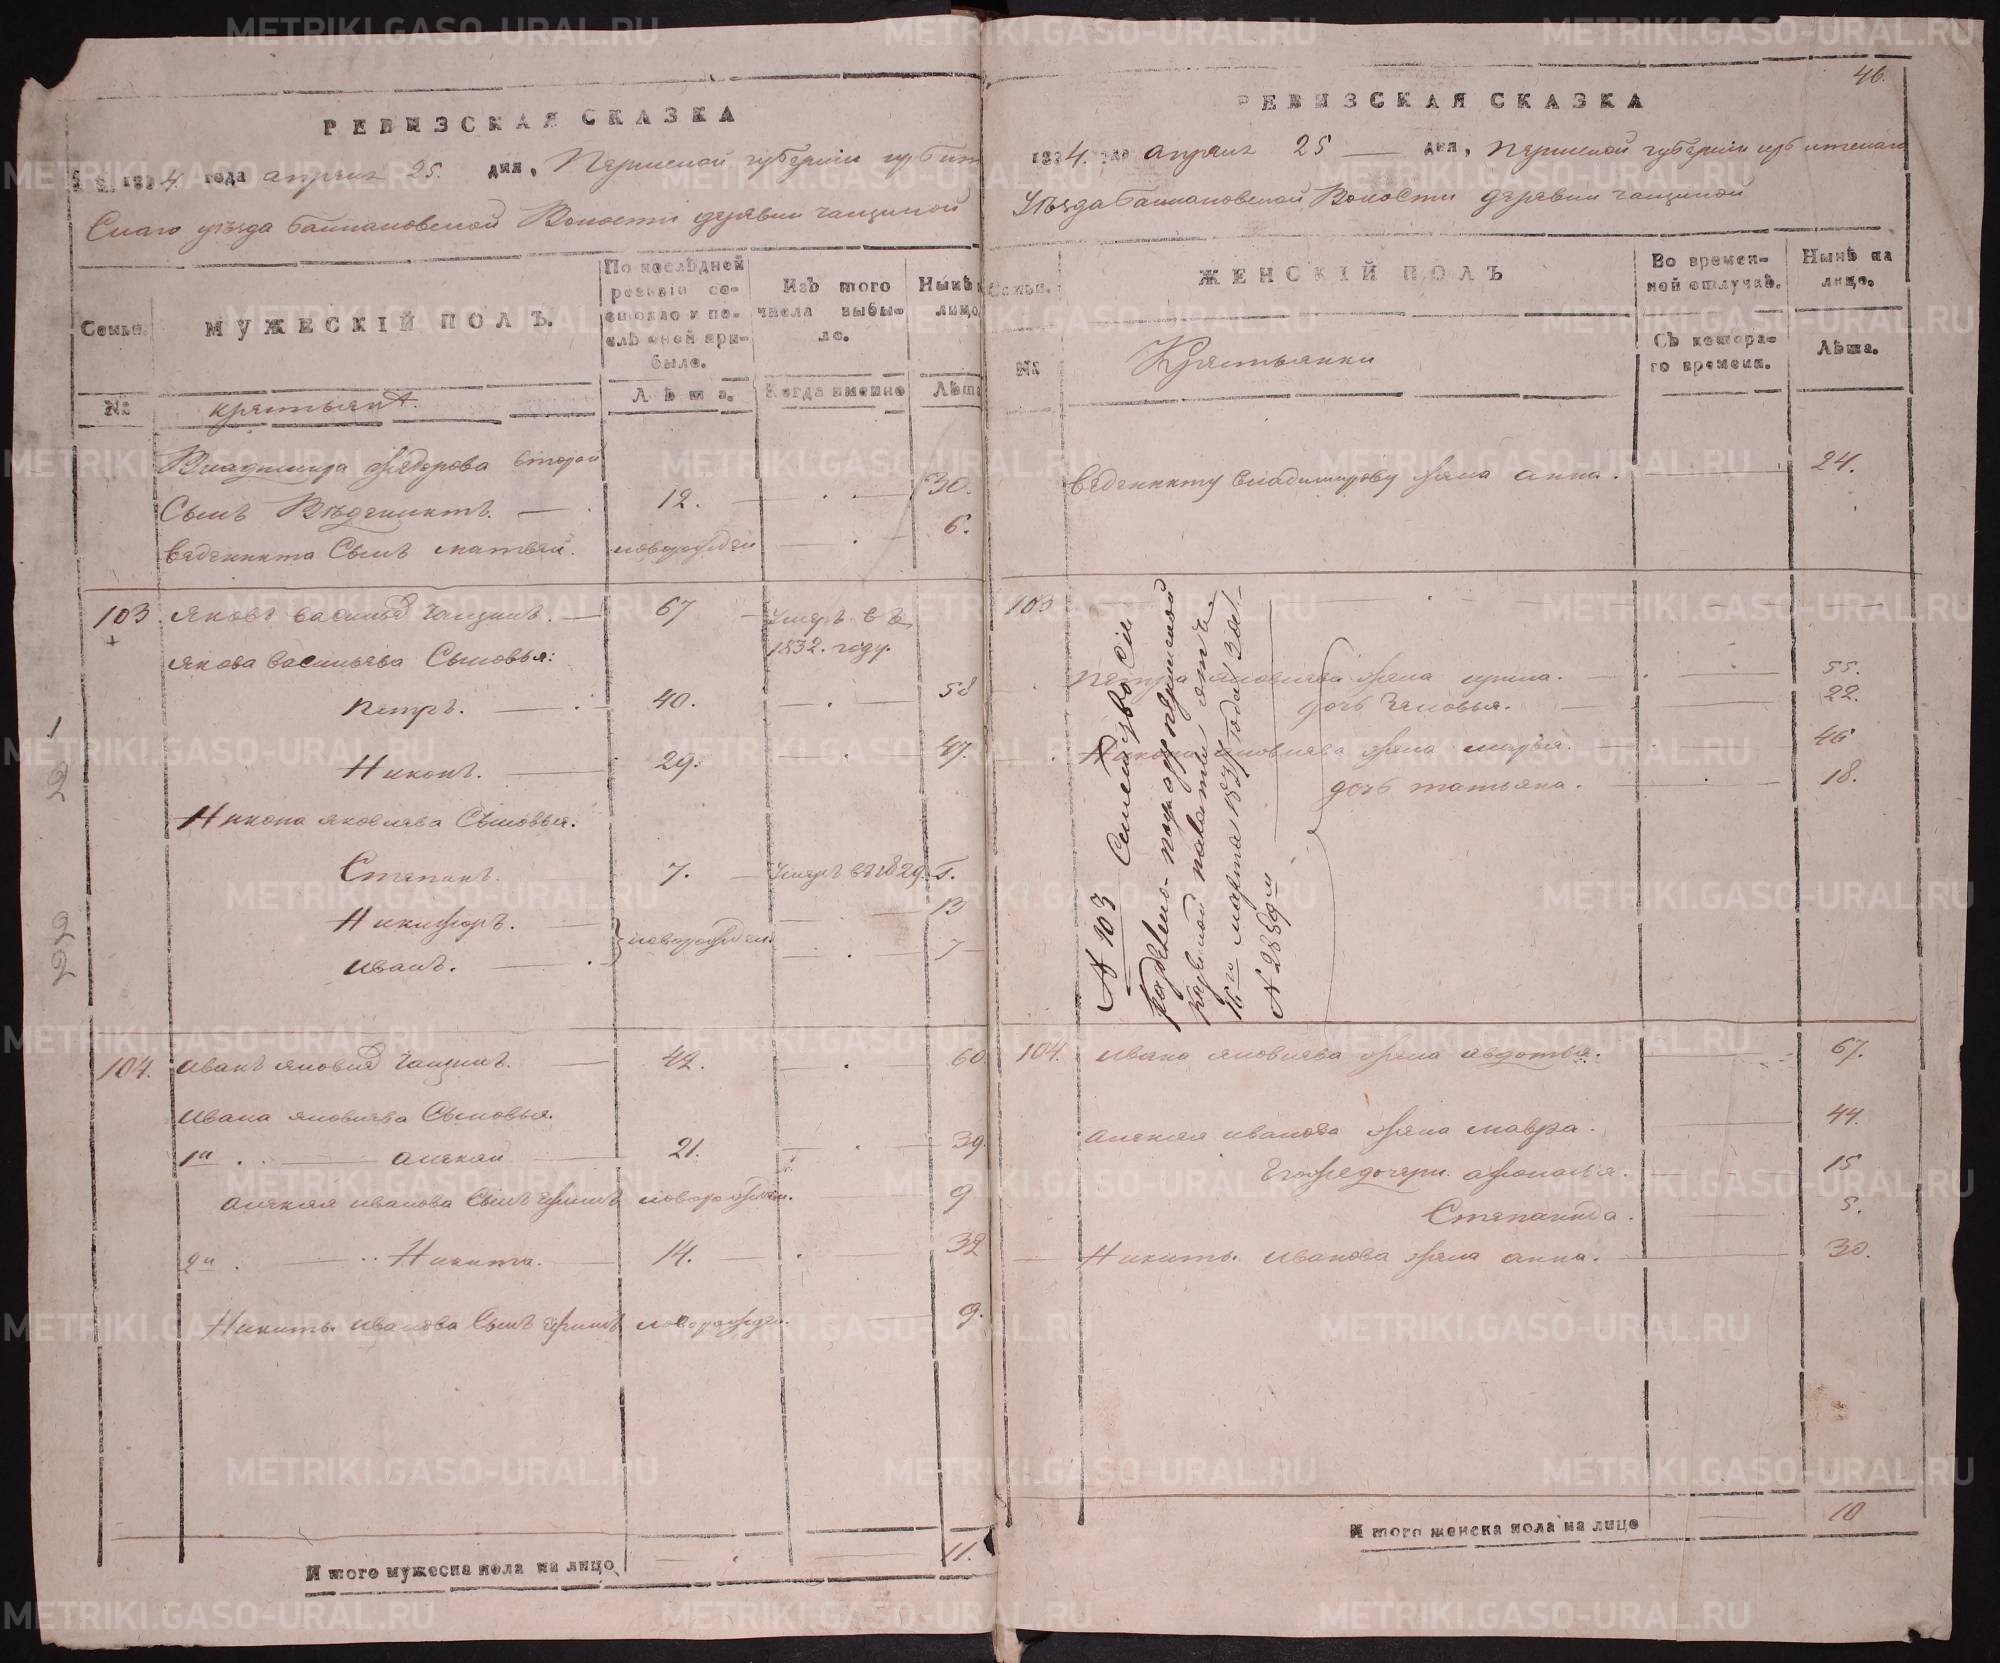 РЕВИЗСКАЯ СКАЗКА
1834 года апреля 25. дня, Пермской губернии ирбит
скаго уѣзда Баишановской Волости деревни чащиной
Семьи.
МУЖЕСКІЙ ПОЛЪ.
По послѣдней ревизіи состояло и послѣ оной прибыло.
Изъ того числа выбыло.
Нынѣ лицо
№
крестьянъ.
Лѣта.
Когда имянно
Лѣта
Владимира Федорова второй
Сынъ Вѣденихтъ. 12. 30.
Веденихта Сынъ матвей. новорожден 6.
103 Яковъ васильев Чащинъ. 67 Умеръ въ 1832. году.
Якова васильева Сыновья:
Петръ. 40. 58
Никонъ. 29. 47.
Никона яковлева Сыновья.
Степанъ. 7. Умеръ въ 1829. г.
Никифоръ. новорожден. 13
Иванъ. 7
104. Иванъ яковлев Чащинъ. 42. 60
Ивана яковлева Сыновья.
1й алексей 21. 39.
алексея иванова Сынъ ефимъ новорожден. 9
2й Никита. 14. 32
Никиты иванова Сынъ ефимъ новорожден. 9.
Итого мужеска пола на лицо 11.
46.
РЕВИЗСКАЯ СКАЗКА
1834. года апреля 25 дня, Пермской губернии ирбитскаго
Уѣзда Баишановской Волости деревни чащиной
Семьи.
ЖЕНСКІЙ ПОЛЪ
Во временной отлучкѣ.
Нынѣ на лицо.
№
Крестьянки
Съ котораго времени.
Лѣта.
Веденихту владимирову жена анна. 24.
103
Петра яковлева жена ирина. 55.
дочь Зиновья. 22.
Никона яковлева жена марья. 46
дочь татьяна. 18.
№ 103 Семейство сіе
разделено по указу пермской
казенной палаты отъ
16го марта 1837 года за
№ 2859м
104. Ивана яковлева жена авдотья. 67.
алексея иванова жена мавра. 44.
Егожедочери. афонасья. 15
Степанида. 5.
Никиты. Иванова жена анна. 30.
Итого женска пола на лице 10
METRIKI.GASO-URAL.RU